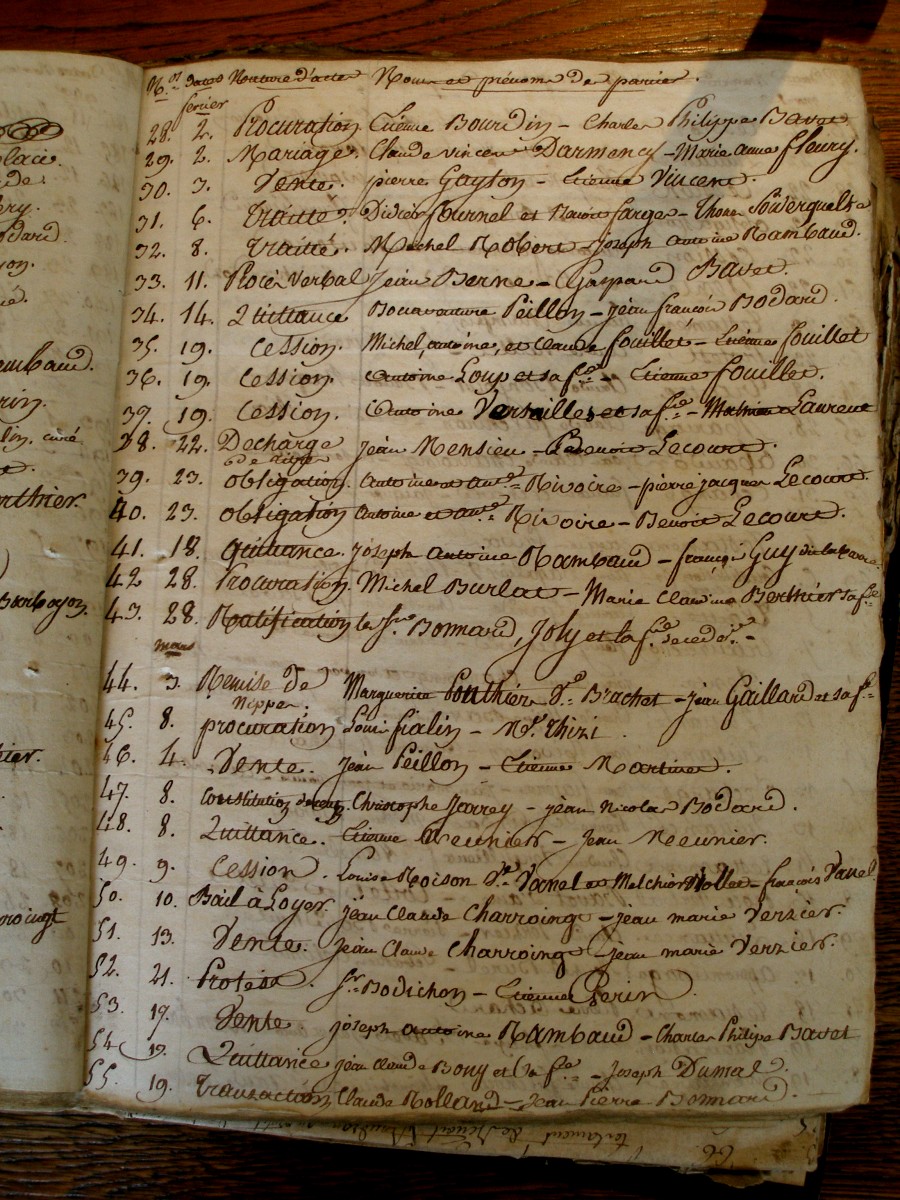 N.os Dates Nature d'actes Noms et prénoms des parties.
février
28. 2. Procuration. Etienne Bourdin - Charles Philippe Bavet
29. 2. Mariage. Claude vincent Darmency - Marie anne fleury.
30. 3. Vente. pierre Guyton - Etienne Vincent.
31. 6. Traitté. Didier fournel et Benoit farge - Thomas
32. 8. Traitté. Michel Robert - Joseph antoine Rambaud.
33. 11. Procès Verbal Jean Berne - Gaspard Bavet.
34. 14. Quittance Bonaventure Peillon - jean françois Bodard.
35. 19. Cession. Michel, antoine, et Claude fouillet - Etienne fouillet
36. 19. Cession. Antoine Loup et sa f.e - Etienne fouillet.
37. 19. Cession. Antoine Versailles et sa f.e - Laurent
38. 22. Décharge Jean Mensieu - Benoit Lecourt.
de titres
39. 23. Obligation. Antoine et Rivoire - pierre jacques Lecourt.
40. 23. Obligation Antoine et Rivoire - Benoit Lecourt.
41. 18. Quittance. Joseph antoine Rambaud - françois Guy
42 28. Procuration. Michel Burlat - Marie Claudine Berthier sa f.e
43. 28. Ratification les s.rs Bonnard, Joly et la f.e
mars
44. 3. Remise de Marguerite Ponthier v.e Brachet - jean Gaillard et sa f.e
Nippes.
45. 8. procuration Louis fialin - Thizi.
46. 4. Vente. Jean Peillon - Etienne Martinet.
47. 8. Constitution Christophe Jarrey - jean Nicolas Bodard.
48. 8. Quittance. Etienne Meunier - Jean Meunier.
49. 9. Cession. Louise Moison v.e Vanel et Melchior Mollet - françois Vanel
50. 10. Bail à Loyer. jean Claude Charroing - jean marie Verzier.
51. 13. Vente. Jean Claude Charroing - jean marie Verzier.
52. 21. Protêt. s.r Bodichon - Etienne Perin.
53. 17. Vente. joseph antoine Rambaud - Charles Philipe Bavet
54 19. Quittance jean claude Bony et sa f.e - Joseph Dumas.
55. 19. Transaction Claude Rolland - Jean Pierre Bonnard.